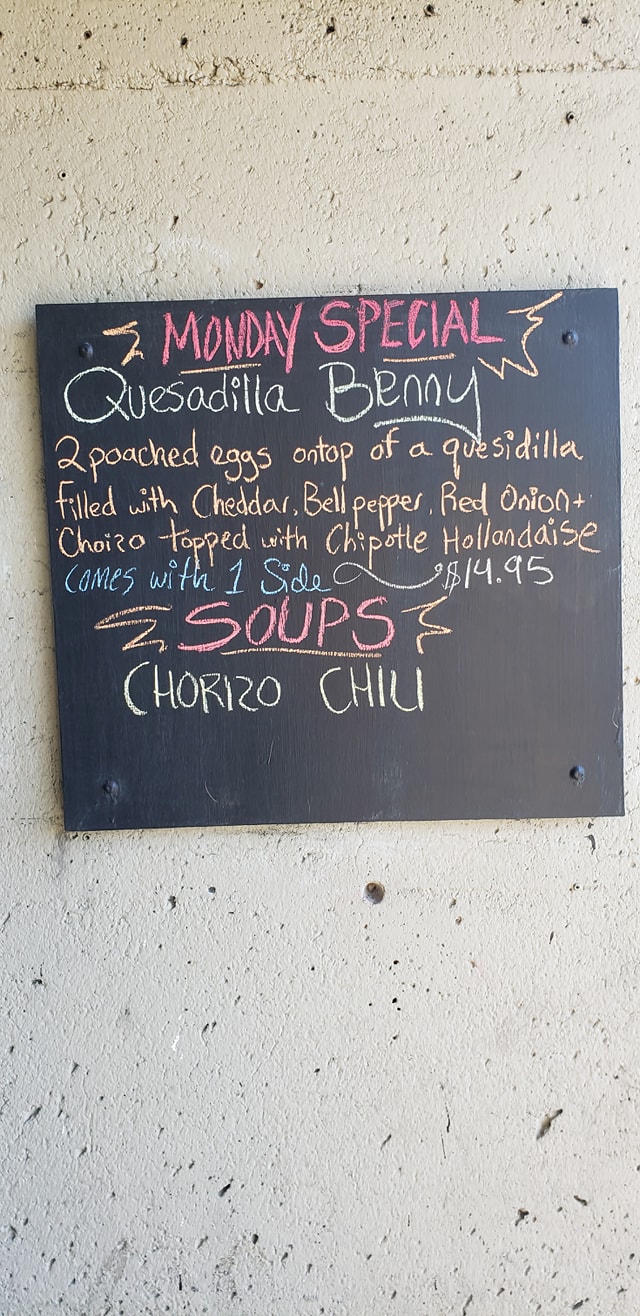 MONDAY SPECIAL
Quesadilla Benny
2 poached eggs ontop of a quesidilla
filled with Cheddar, Bell pepper, Red Onion +
Choizo topped with Chipotle Hollandaise
comes with 1 Side $14.95
SOUPS
CHORIZO CHILI